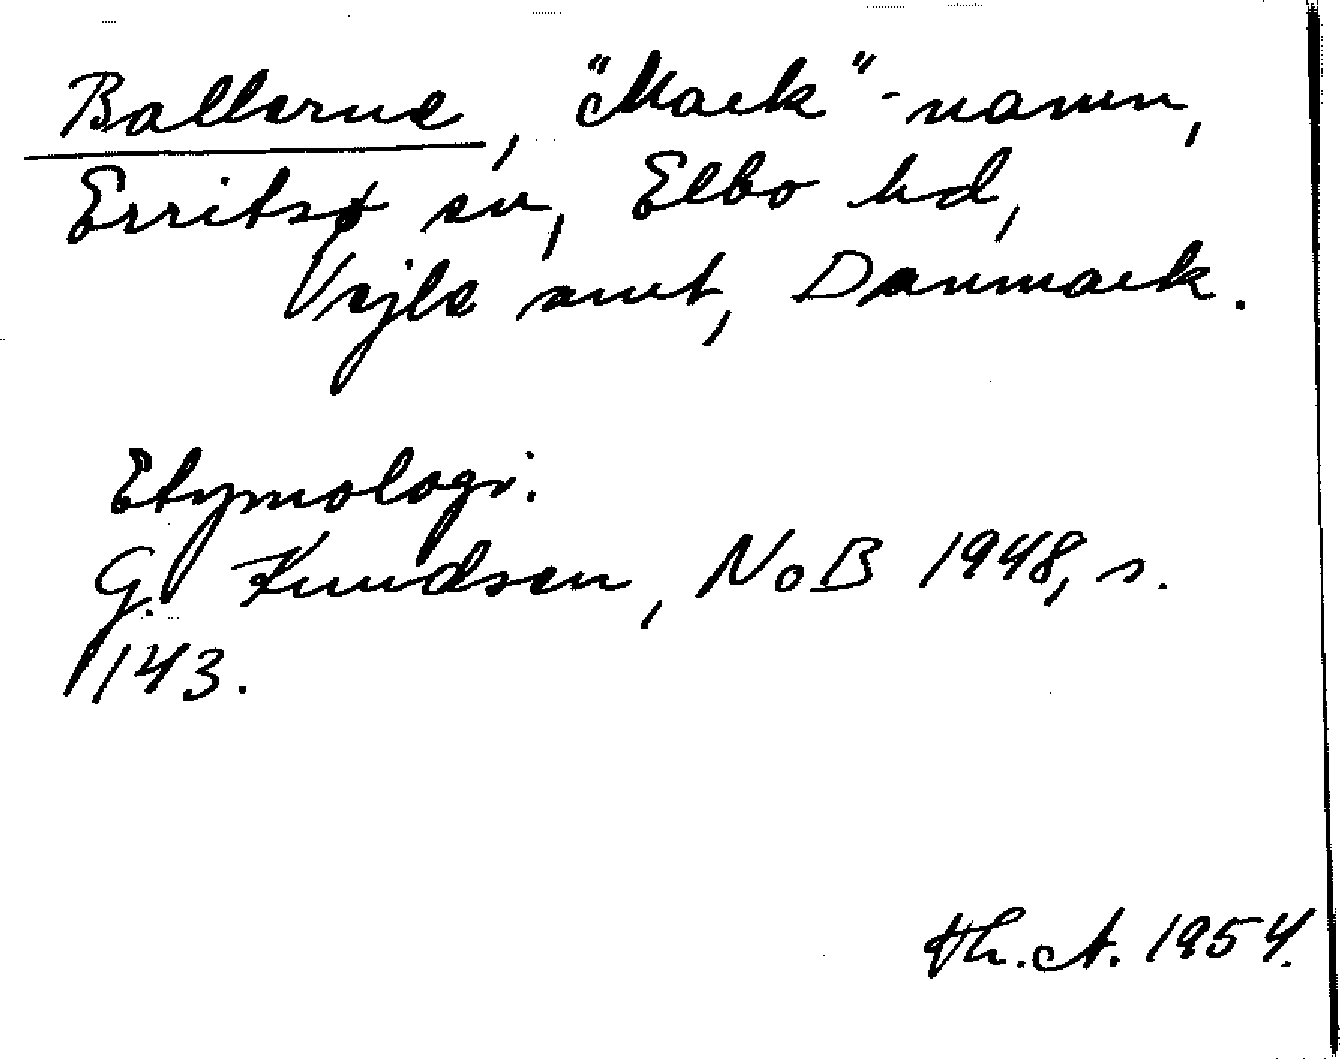 Ballerne, "Mark"-namn,
Erritsø sn, Elbo hd,
Vejle amt, Danmark.
Etymologi.
G. Knudsen, NoB 1948, s.
143.
Th. A. 1954.